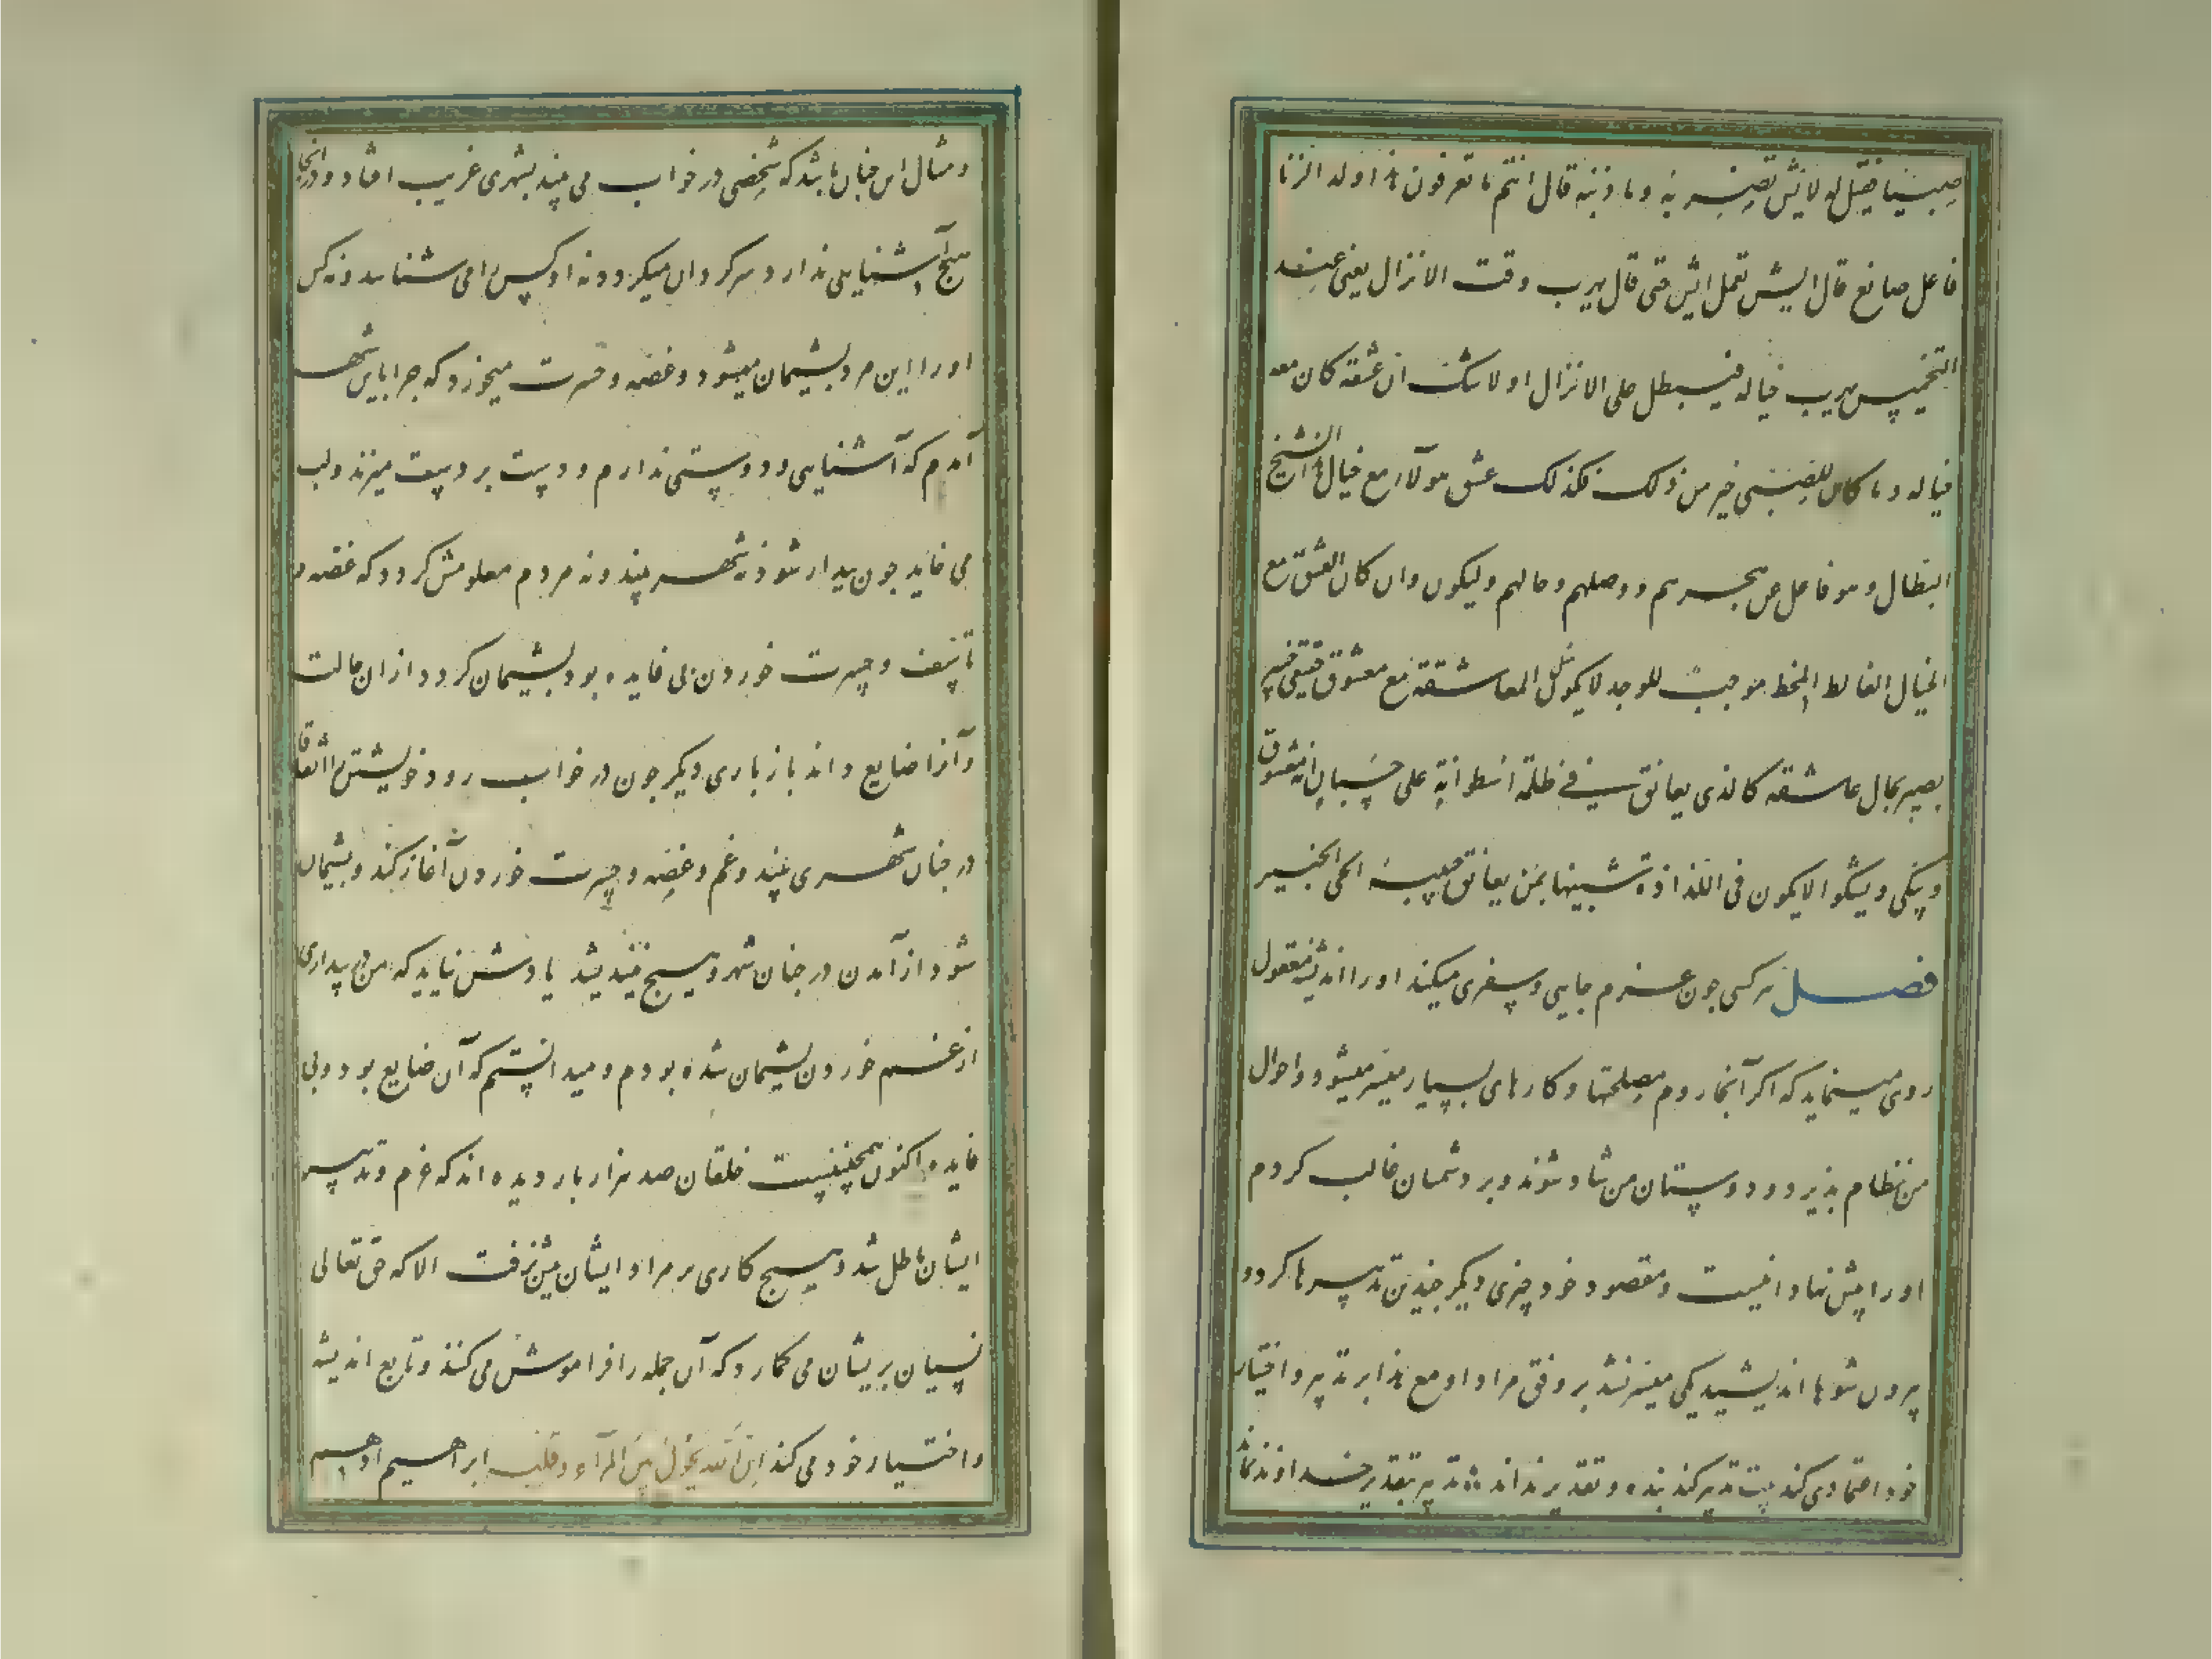 صبیّنا فقیل له لایش تضربه و ما ذنبه قال انتم ما تعرفون هذا ولد الزنا
فاعل صانع قال ایش تعمل ایش حتی قال یهرب وقت الانزال یعنی عند
التخمیس یهرب خیاله فیبطل علی الانزال و لا شک ان عشقه کان مع
خیاله و ما کان للصبیّ خبر من ذلک فکذلک عشق هولآء مع خیال هذا الشیخ
البطّال و هو غافل عن هجرهم و وصلهم و حالهم ولیکون وان کان العشق مع
الخیال الغالط المخط موجبًا للوجد لا یکون مثل المعاشقة مع معشوق حقیقی خبیر
بصیر بحال عاشقه کالذی یعانق فی ظلمة اسطوانة علی حسبان انه معشوق
ویبکی و یشکو الا یکون فی اللذاذة شبیها بمن یعانق حبیبه الحی الخبیر
فصل هر کسی چون عزم جایی و سفری میکند او را اندیشه معقول
روی مینماید که اکر آنجا روم مصلحتها و کارهای بسیار میسر میشود و احوال
من نظام پذیرد و دوستان من شاد شوند و بر دشمنان غالب کردم
او را پیش نهاد اینست و مقصود خود چیزی دیکر چندین تدبیرها کرد و
بیرون شوها اندیشید یکی میسر نشد بر وفق مراد او مع هذا بر تدبیر و اختیار
خود اعتمادی کند بیت تدبیر کند بنده و تقدیر نداند تدبیر بتقدیر خداوند نماند
و مثال این چنان باشد که شخصی در خواب می بیند بشهری غریب افتاد و در آنجا
هیچ آشنایی ندارد سرکردان میکردد نه او کسی را می شناسد و نه کس
او را این مرد پشیمان میشود و غصه و حسرت میخورد که چرا باین شهر
آمدم که آشنایی و دوستی ندارم و دست بر دست میزند و لب
می خاید چون بیدار شود نه شهر بیند و نه مردم معلومش کردد که غصه و
تاسف و حسرت خوردن بی فایده بود پشیمان کردد از ان حالت
و آنرا ضایع داند باز باری دیکر چون در خواب رود خویشتن را اتفاقا
در چنان شهری بیند و غم و غصه و حسرت خوردن آغاز کند و پشیمان
شود از آمدن در چنان شهر و هیچ نیندیشد یادش نیاید که من در بیداری
از غم خوردن پشیمان شده بودم و میدانستم که آن ضایع بود و بی
فایده اکنون همچنینست خلقان صد هزار بار دیده اند که عزم و تدبیر
ایشان باطل شد و هیچ کاری بر مراد ایشان پیش نرفت الا که حق تعالی
نسیان بریشان می کمارد که آن جمله را فراموش می کنند و تابع اندیشه
و اختیار خود می کند اِنَّ اللّه یَحُولُ بَینَ المرء و قلبه ابراهیم ادهم